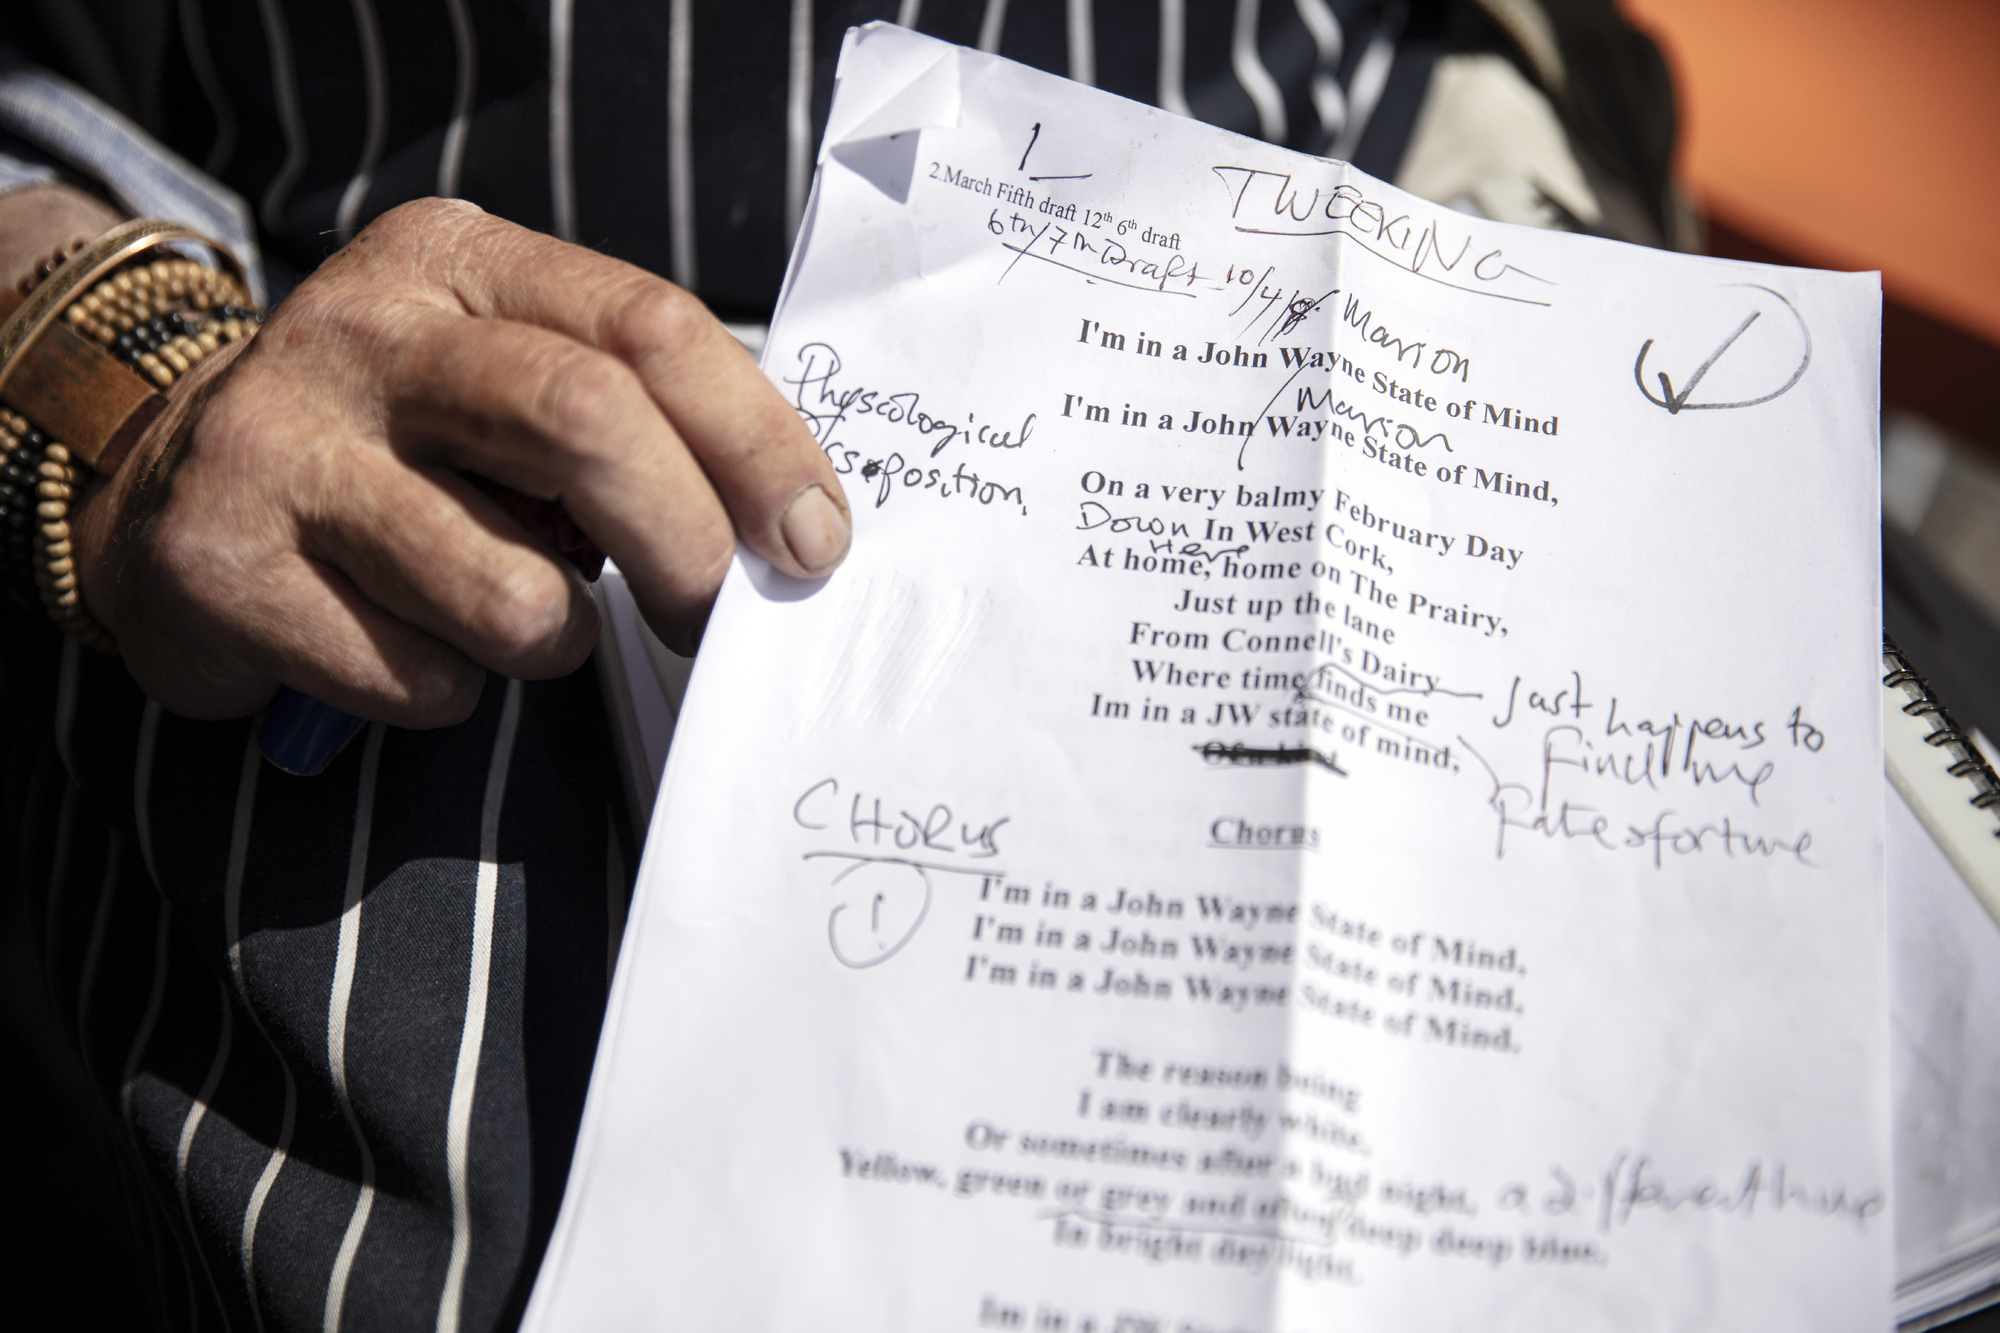 1
TWEEKING
2.March Fifth draft 12th 6th draft
6th/7th Draft 10/4/
Marion
I'm in a John Wayne State of Mind
Marion
I'm in a John Wayne State of Mind,
Physcological
Dissposition,
On a very balmy February Day
Down In West Cork,
Here
At home, home on The Prairy,
Just up the lane
From Connell's Dairy
Where time finds me
Just happens to
Find me
Im in a JW state of mind,
Fate & fortune
CHORUS
!
Chorus
I'm in a John Wayne State of Mind,
I'm in a John Wayne State of Mind,
I'm in a John Wayne State of Mind.
The reason being
I am clearly white,
Or sometimes after a bad night,
Yellow, green or grey and often deep deep blue,
In bright day light.
Im in a JW